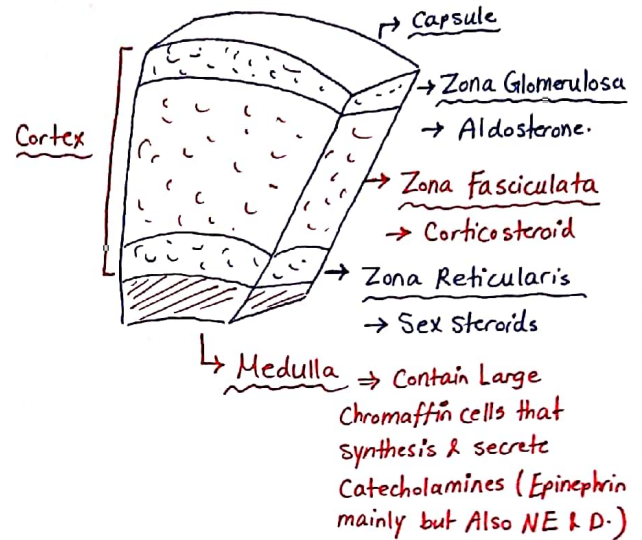 Capsule
Zona Glomerulosa
→ Aldosterone.
Cortex
Zona Fasciculata
→ Corticosteroid
Zona Reticularis
→ Sex steroids
Medulla ⇒ Contain Large
Chromaffin cells that
synthesis & secrete
Catecholamines (Epinephrin
mainly but Also NE & D.)